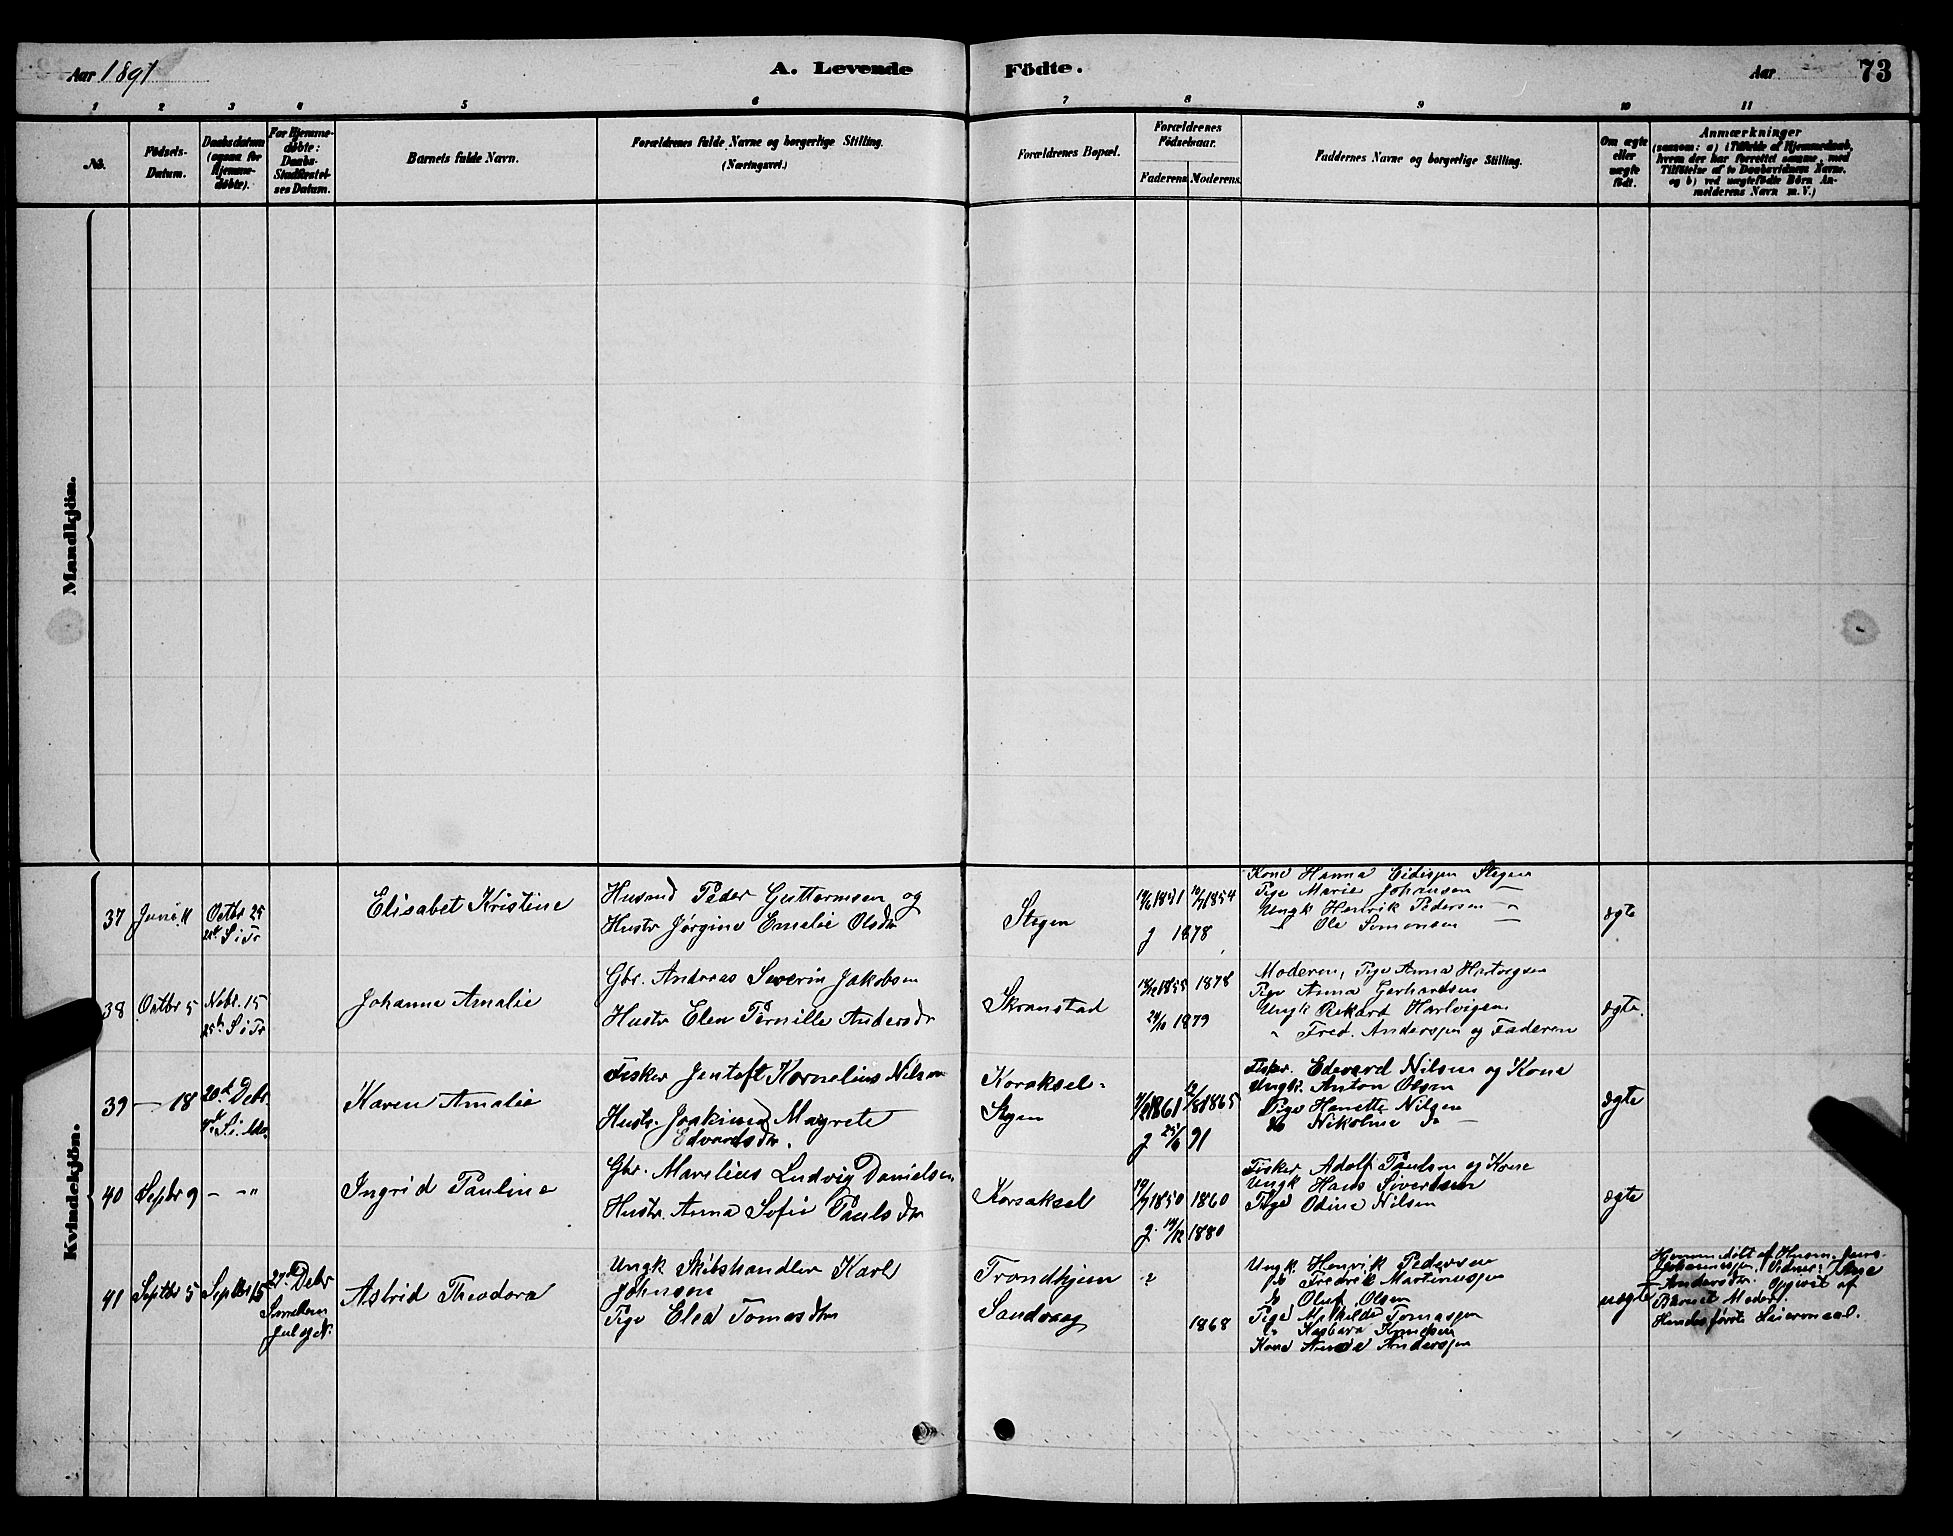 Aar 1891
A. Levende
Födte.
Aar
73
1
2
3
4
5
6
7
8
9
10
11
No.
Födsels-
Datum.
Daabsdatum
(ogsaa for
Hjemme-
døbte).
For Hjemme-
døbte:
Daabs-
Stadfæstel-
ses Datum.
Barnets fulde Navn.
Forældrenes fulde Navne og borgerlige Stilling.
(Næringsvei.)
Forældrenes Bopæl.
Forældrenes
Födselsaar.
Faderens
Moderens.
Faddernes Navne og borgerlige Stilling.
Om ægte
eller
uægte
födt.
Anmærkninger
(saasom: a) i Tilfælde af Hjemmedaab,
hvem der har forrettet samme, med
Tilföielse af to Daabsvidners Navne,
og b) ved uægtefödte Börn An-
melderens Navn m. V.)
Mandkjön.
Kvindekjön.
37
Juni 11
Octbr 25
S i Tr
Elisabet Kristine
Husmd Peder Guttormsen og
Hustr Jørgine Emalie Olsdtr
Stegen
1854
g 1878
Kone Hanna Eidisen Stegen
Pige Marie Johansen —
Ungk Henrik Pedersen
Ole Simonsen —
ægte
38
Octbr 5
Nobr. 15
25 S i Tr
Johanna Amalie
Gbr. Andreas Severin Jakobsen
Hustr Elen Pernille Andersdtr
Skranstad
1855 1878
1879
Moderen, Pige Anna Hartvigsen
Pige Anna Gerhardsen
Ungk Rekard Hartvigsen
Fred. Andersen og Faderen
ægte.
39
— 18
20de Debr
Karen Amalie
Fisker Jentoft Kornelius Nilsen
Hustr. Joakima Magrete
Edvardsdtr.
Koraksel-
Stegen
1861
1865
91
Fisker. Edevard Nilsen og Kone
Ungk. Anton Olsen
Pige Hanette Nilsen
Nikoline do —
ægte
40
Septbr 9
— —"
Ingrid Pauline
Gbr. Marelius Ludvig Danielsen
Hustr. Anna Sofie Paulsdtr
Korsaksel
1850 1860
1880
Fisker Adolf Paulsen og Kone
Ungk Hans Sivertsen
Pige Odine Nilsen
ægte
41
Septbr 5
Septbr 15
27de Debr
Juleg
Astrid Theodora
Ungk Skibshandler Karl
Johnsen
Pige Elea Tomasdtr
Trondhjem
Sandvaag
?
1868
Ungk. Henrik Pedersen
Fredrik Martinussen
Oluf Olsen
Pige Mathilde Tomassen
Barbara Knudsen
Kone Anna Andersen
uægte
Hjemmedøbt af Husm. Jens
Johannessen, Vidner: Pige
Andersdtr. Opgivet af
Barnets Moder.
Hendes første Leiermaal.